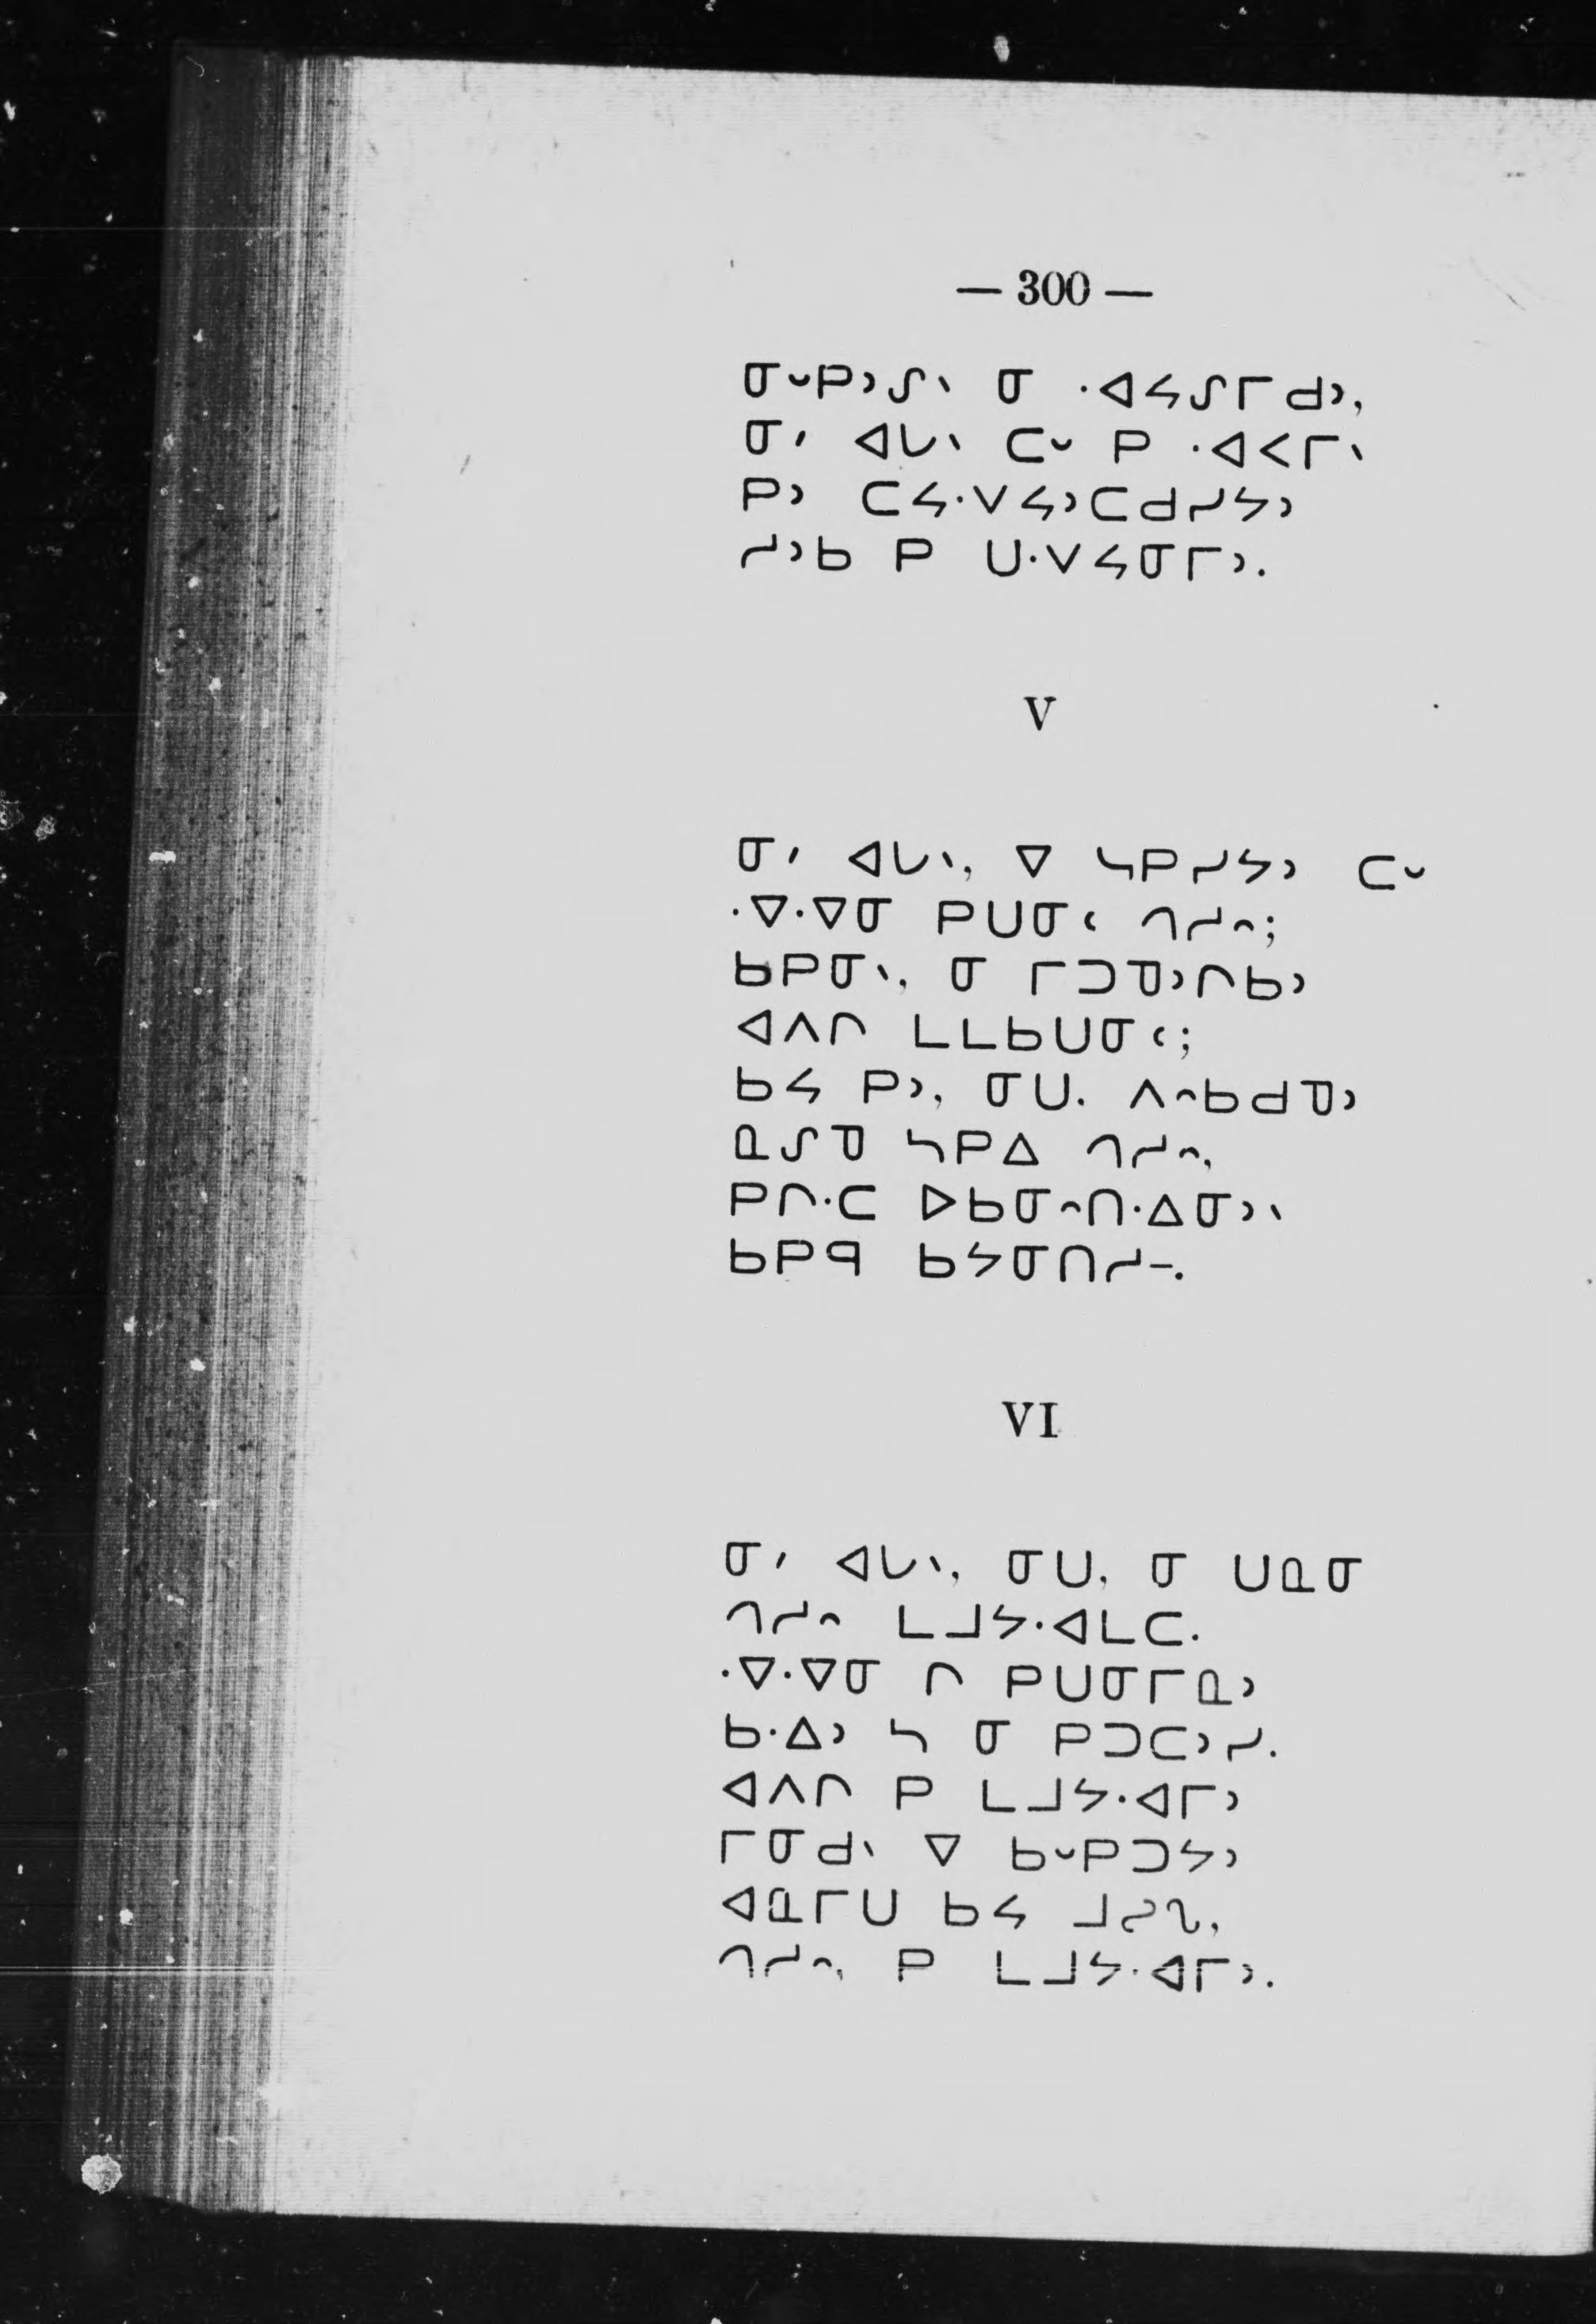 — 300 —
ᓂᐨᑭᐣᔑᐠ ᓂ ᐧᐊᔭᔑᒥᑯᐣ,
ᓂᐟ ᐊᒐᐠ ᑕᐨ ᑭ ᐧᐊᐸᒥᐠ
ᑭᐣ ᑕᔭᐧᐯᔭᐣᑕᑯᓯᔭᐣ
ᓯᐣᑲ ᑭ ᑌᐧᐯᔭᓂᒥᐣ.
V
ᓂᐟ ᐊᒐᐠ, ᐁ ᓴᑭᓯᔭᐣ ᑕᐨ
ᐧᐁᐧᐁᓂ ᑭᑌᓂᑦ ᒉᓯᐢ;
ᑲᑭᓂᐠ, ᓂ ᒥᑐᑫᐣᒋᑲᐣ
ᐊᐱᒋ ᒪᒪᑲᑌᓂᑦ;
ᑲᔭ ᑭᐣ, ᓂᑌ, ᐱᐢᑲᑯᓀᐣ
ᓇᔑᓀ ᓴᑭᐃ ᒉᓯᐢ,
ᑭᒋᐧᑕ ᐅᑲᓂᐢᑎᐧᐃᓂᐣᐠ
ᑲᑭᑫ ᑲᔭᓂᑎᓯᐨ.
VI
ᓂᐟ ᐊᒐᐠ, ᓂᑌ, ᓂ ᑌᓇᓂ
ᒉᓯᐢ ᒪᒧᔭᐧᐊᒪᑕ.
ᐧᐁᐧᐁᓂ ᒋ ᑭᑌᓂᒥᓇᐣ
ᑲᐧᐃᐣ ᓴ ᓂ ᑭᑐᑕᐣᓯ.
ᐊᐱᒋ ᑭ ᒪᒧᔭᐧᐊᒥᐣ
ᒥᓂᑯᐠ ᐁ ᑲᐨᑭᑐᔭᐣ
ᐊᓇᒥᑌ ᑲᔭ ᒧᔕᐠ,
ᒉᓯᐢ, ᑭ ᒪᒧᔭᐧᐊᒥᐣ.